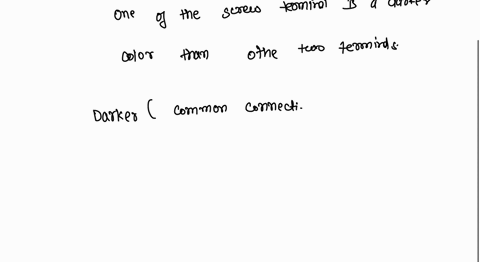 One of the screw terminal is a darker
color than othe two terminds.
Darker ( common connecti.